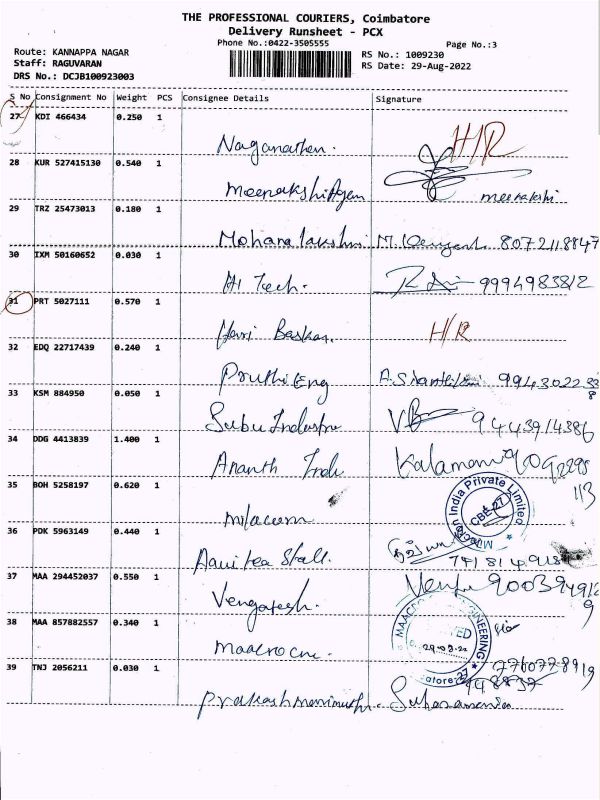 THE PROFESSIONAL COURIERS, Coimbatore
Delivery Runsheet - PCX
Phone No.:0422-3505555
Page No.:3
Route: KANNAPPA NAGAR
RS No.: 1009230
Staff: RAGUVARAN
RS Date: 29-Aug-2022
DRS No.: DCJB100923003
S No Consignment No Weight PCS Consignee Details Signature
27 KDI 466434 0.250 1
Naganathan. H/R
28 KUR 527415130 0.540 1
meenakshi meenakshi
29 TRZ 25473013 0.180 1
Mohanalakshmi 8072118847
30 IXM 50160652 0.030 1
Hi Tech. 9994983812
31 PRT 5027111 0.570 1
Hari Baskar. H/R
32 EDQ 22717439 0.240 1
Pruthi Eng 99430 22 33
8
33 KSM 884950 0.050 1
Subu Industry 9443914386
34 DDG 4413839 1.400 1
Ananth Indu Kalamani
113
35 BOH 5258197 0.620 1
milacron India Private Limited
36 PDK 5963149 0.440 1
Stall.
37 MAA 294452037 0.550 1
Vengatesh. 9003949129
38 MAA 857882557 0.340 1
ENGINEERING
39 TNJ 2056211 0.030 1
7760778919